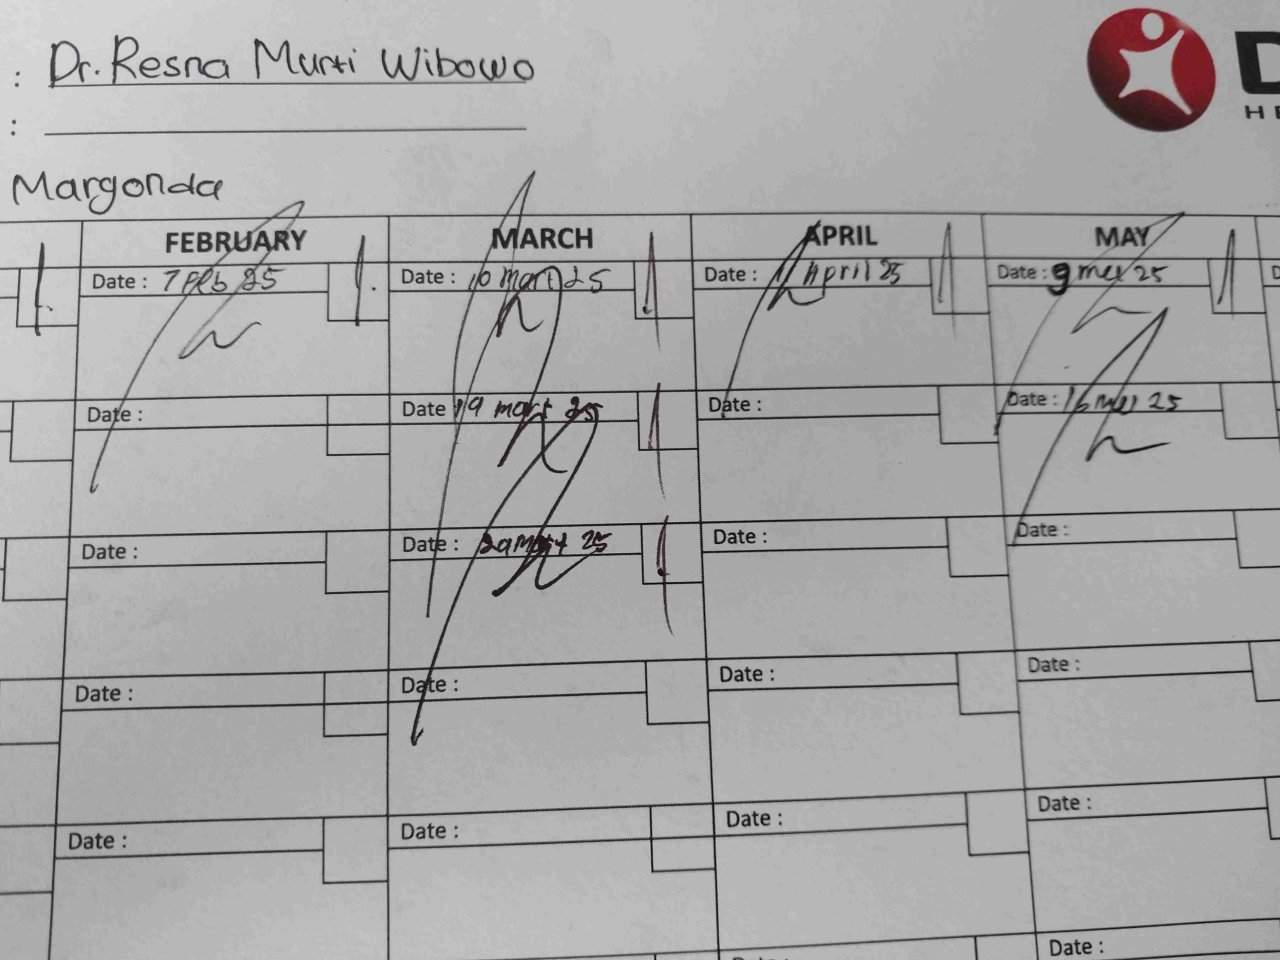 : Dr. Resna Murti Wibowo
:
Margonda
D
HE
FEBRUARY MARCH APRIL MAY
Date : 7 Feb 25 Date : 10 mart 25 Date : 11 April 25 Date : 9 mei 25 D
Date : Date : 19 mart 25 Date : Date : 16 mei 25
Date : Date : 29 mart 25 Date : Date :
Date : Date : Date : Date :
Date : Date : Date : Date :
Date :